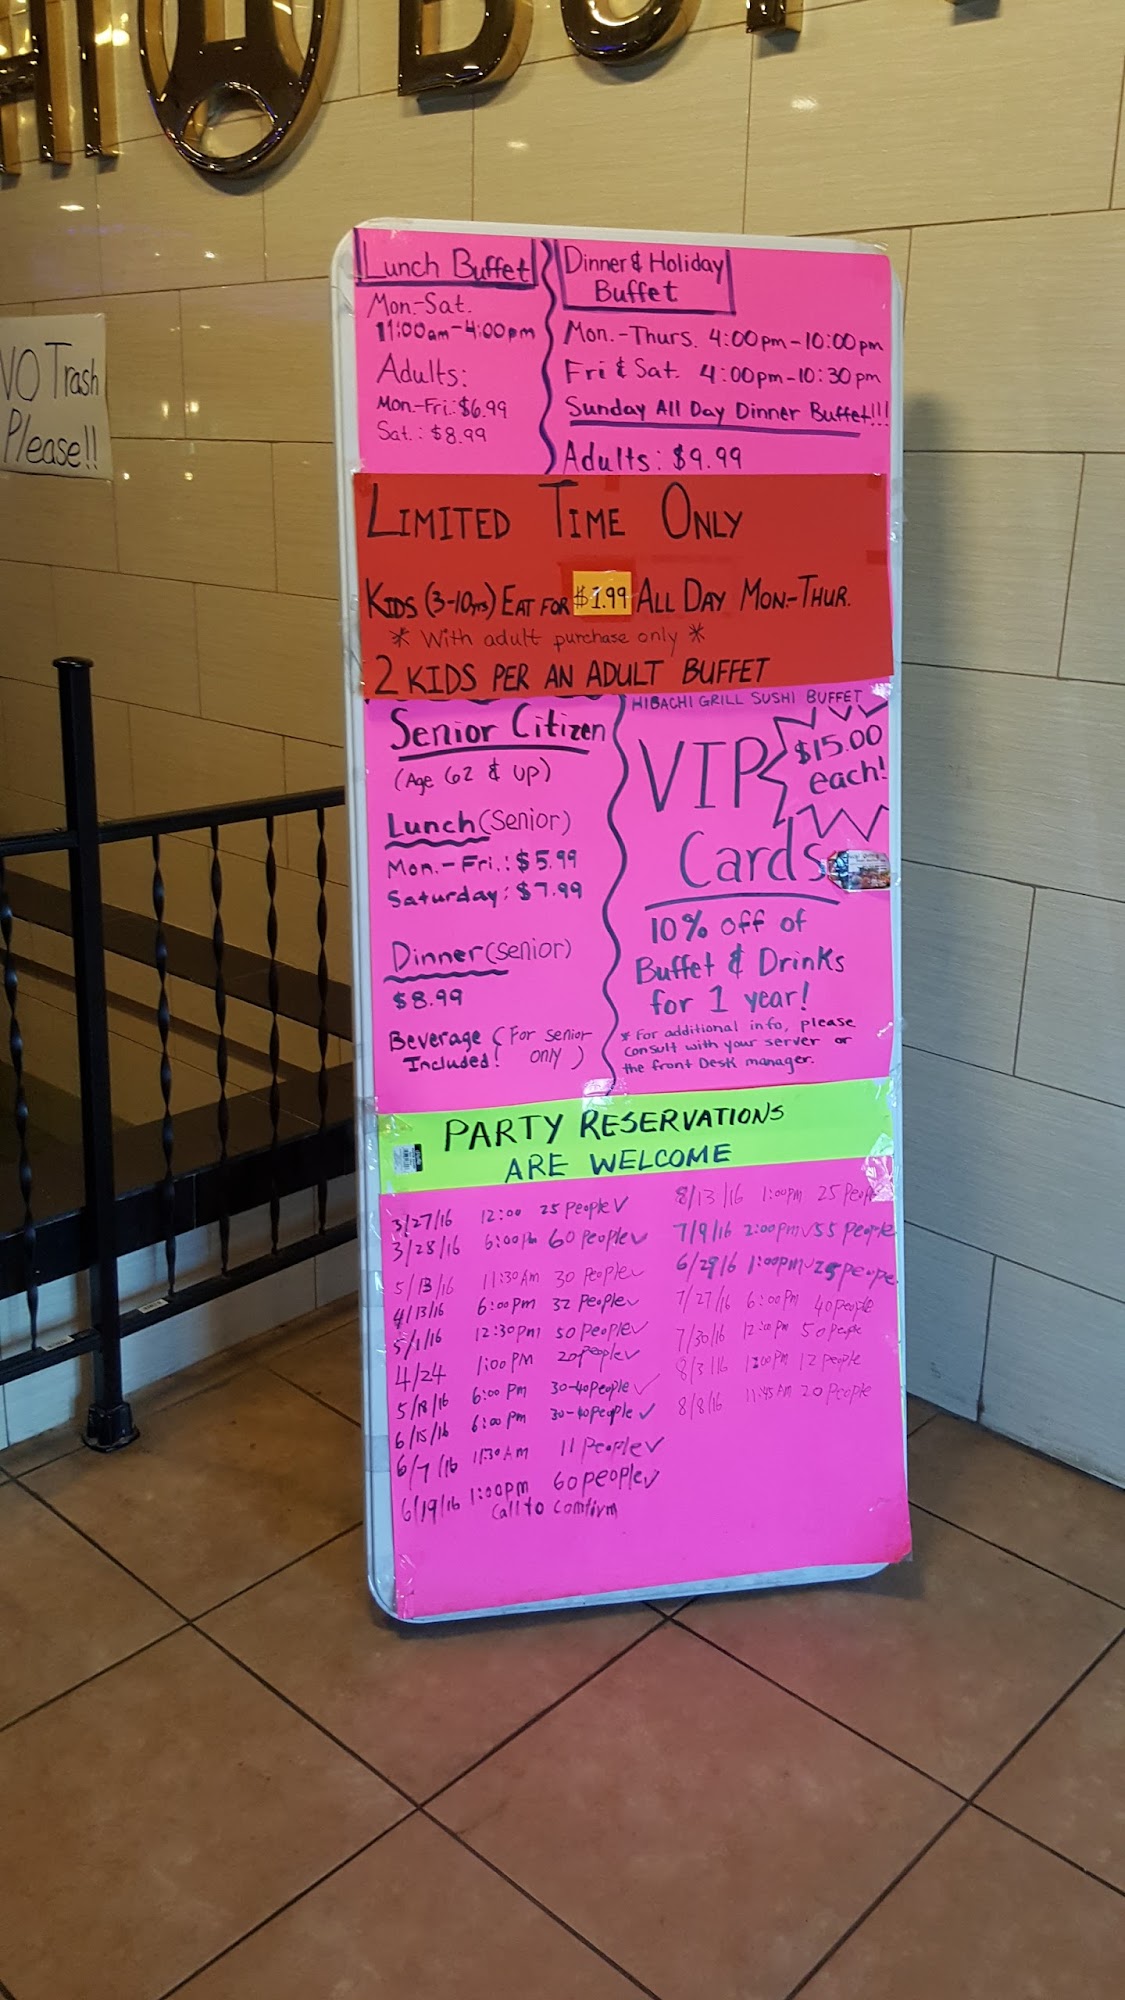 NO Trash
Please!!
Lunch Buffet
Mon-Sat.
11:00am-4:00pm
Adults:
Mon.-Fri.: $6.99
Sat.: $8.99
Dinner & Holiday
Buffet
Mon.-Thurs. 4:00pm-10:00pm
Fri & Sat. 4:00pm-10:30pm
Sunday All Day Dinner Buffet!!!
Adults: $9.99
LIMITED TIME ONLY
KIDS (3-10yrs) EAT FOR $1.99 ALL DAY MON.-THUR.
* With adult purchase only *
2 KIDS PER AN ADULT BUFFET
Senior Citizen
(Age 62 & up)
Lunch (Senior)
Mon.-Fri.: $5.99
Saturday: $7.99
Dinner (senior)
$8.99
Beverage (For senior
Included! only)
HIBACHI GRILL SUSHI BUFFET
VIP
$15.00
each!
Cards
10% off of
Buffet & Drinks
for 1 year!
* For additional info, please
consult with your server or
the front Desk manager.
PARTY RESERVATIONS
ARE WELCOME
3/27/16 12:00 25 People ✓
3/28/16 6:00pm 60 People ✓
5/13/16 11:30AM 30 People ✓
4/13/16 6:00pm 32 People ✓
5/1/16 12:30pm 50 People ✓
4/24 1:00PM 20people ✓
5/18/16 6:00 Pm 30-40people ✓
6/15/16 6:00 pm 30-40people ✓
6/7/16 11:30 AM 11 People ✓
6/19/16 1:00pm 60 people ✓
Call to Comfirm
8/13/16 1:00pm 25 People
7/9/16 2:00pm ✓ 55 people
6/29/16 1:00pm ✓ 25 peope
7/27/16 6:00pm 40 people
7/30/16 12:00pm 50 people
8/3/16 1:00pm 12 people
8/8/16 11:45 AM 20 People